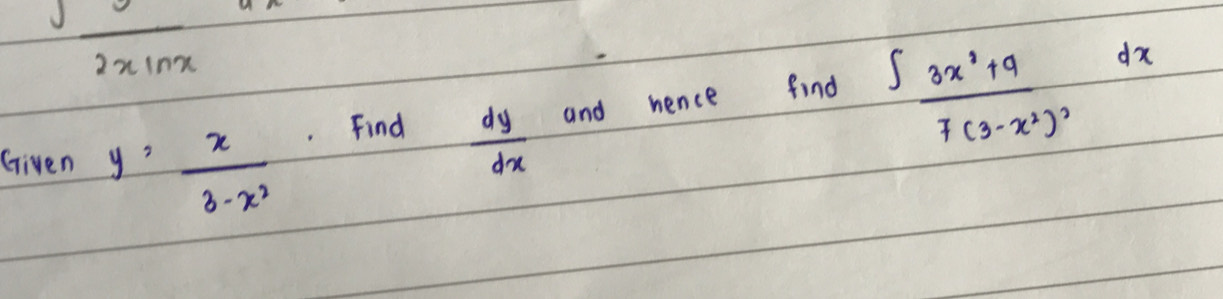 2x ln x
Given y = x / (3 - x²) . Find dy/dx and hence find ∫ (3x² + 9) / (7(3 - x²)²) dx